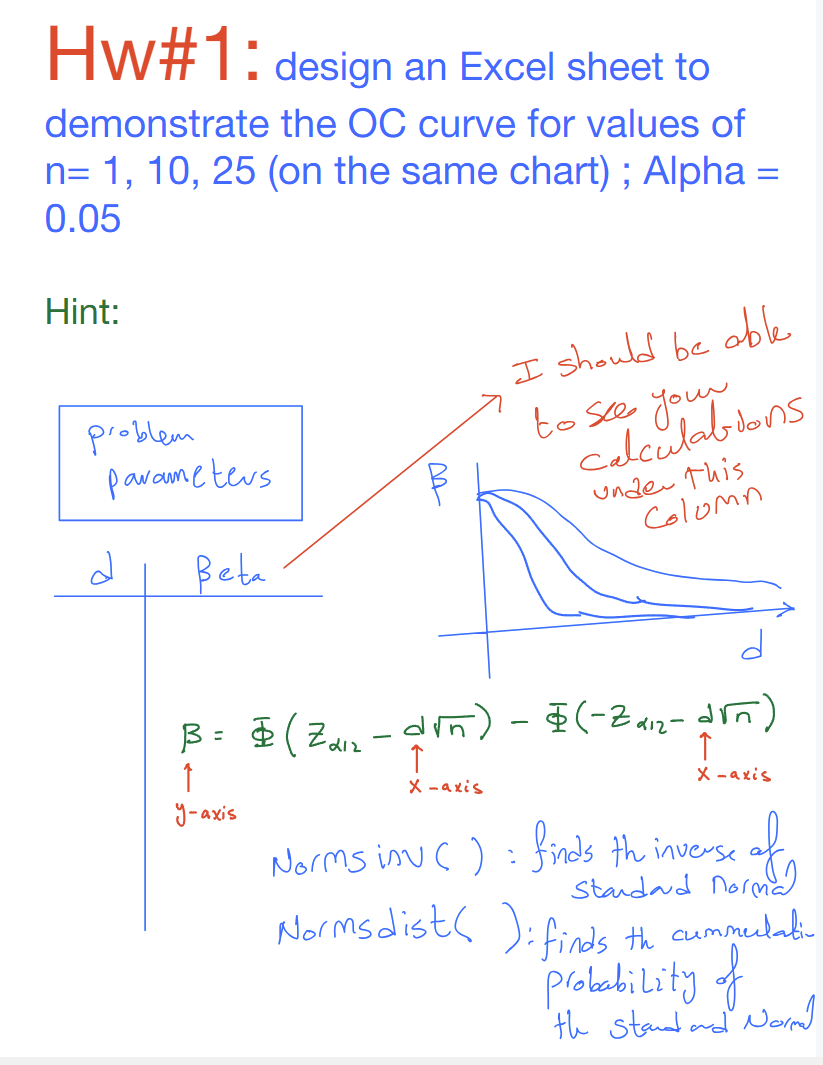 Hw#1: design an Excel sheet to
demonstrate the OC curve for values of
n= 1, 10, 25 (on the same chart) ; Alpha =
0.05
Hint:
I should be able
to see your
calculations
under this
Column
problem
parameters
β
d | Beta
d
β = Φ(Zα/2 − d√n) − Φ(−Zα/2 − d√n)
↑ ↑ ↑
x-axis x-axis
y-axis
Normsinv( ) : finds th inverse of
standard normal
Normsdist( ): finds th cummulati
probability of
th standard Normal